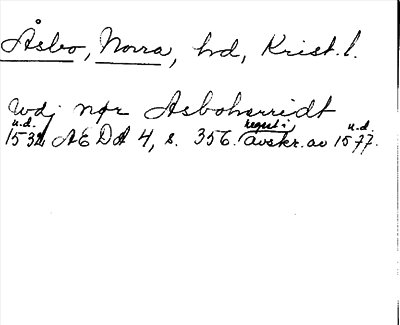 Åsbo, Norra, hd, Krist. l.
Wdj nør Asboherridt
u.d. regest i u.d.
1532 ÆDA 4, s. 356. avskr. av 1577.